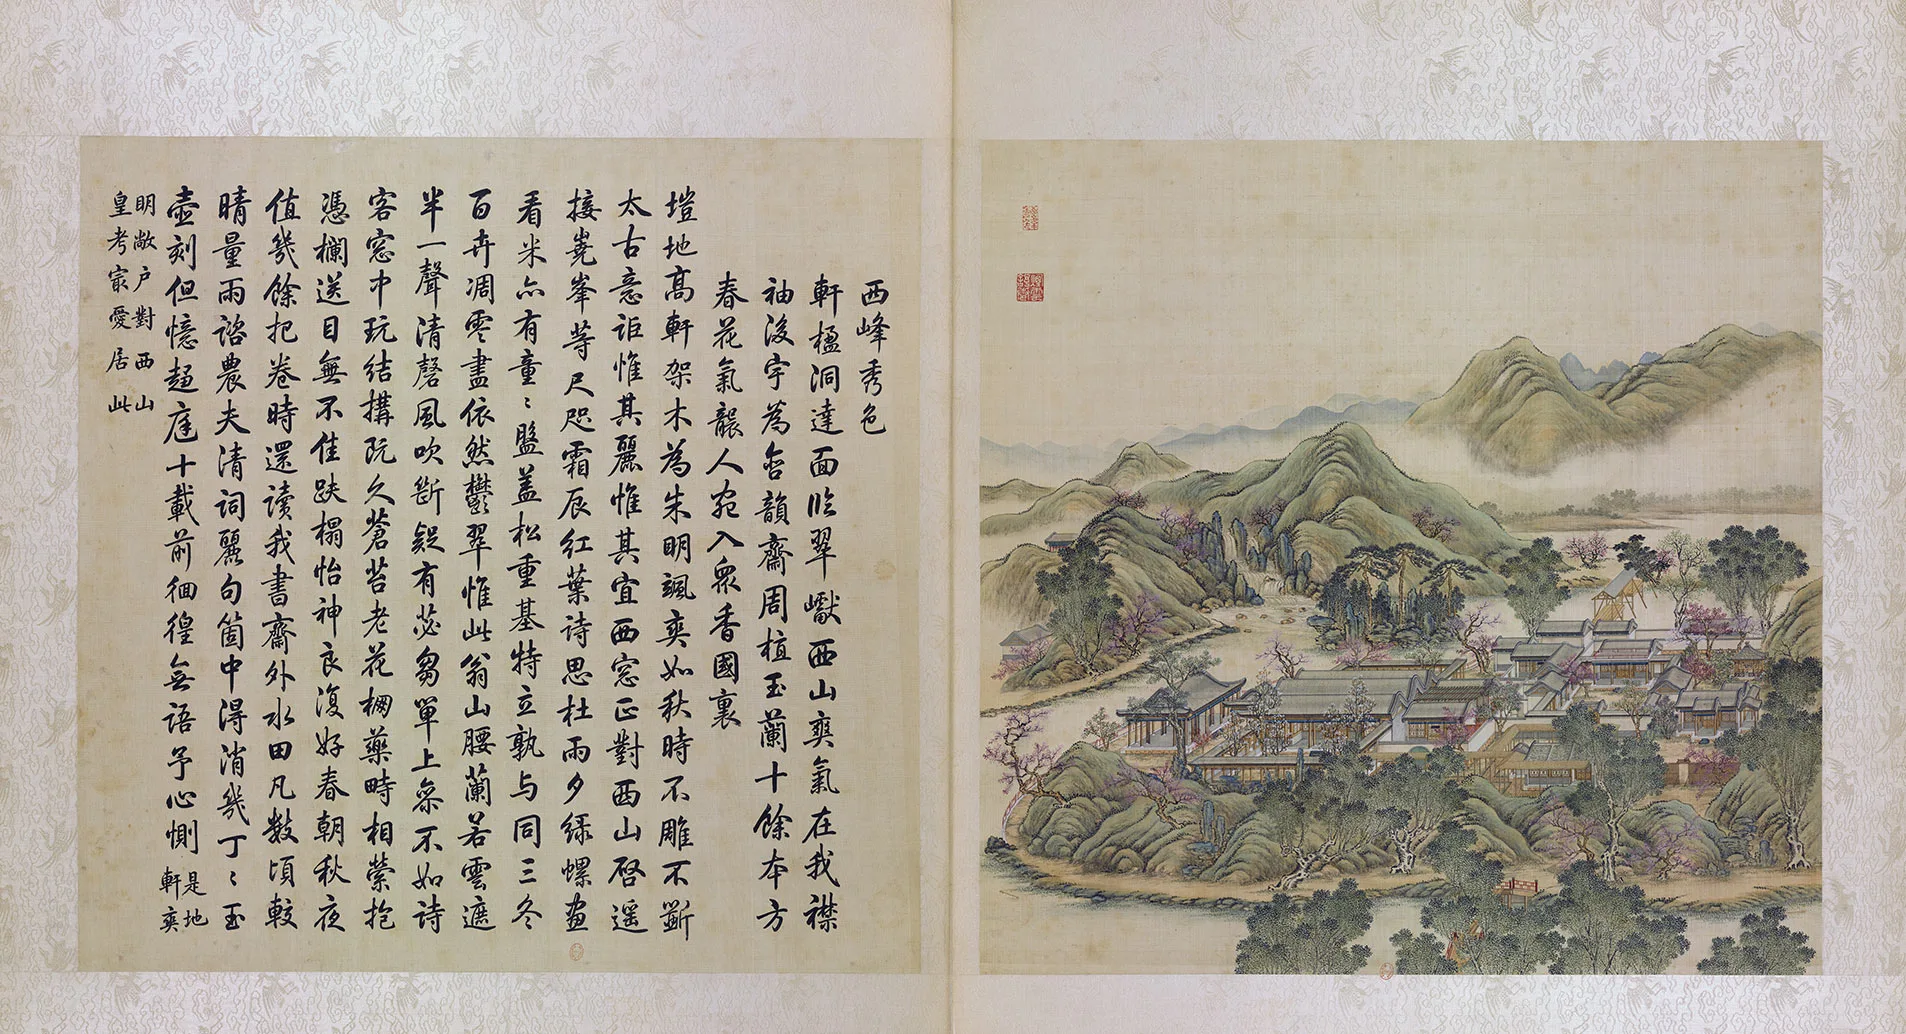 西峰秀色
軒楹洞達面臨翠巘西山爽氣在我襟
袖後宇為含韻齋周植玉蘭十餘本方
春花氣襲人宛入衆香國裏
塏地高軒架木為朱明颯爽如秋時不雕不斵
太古意詎惟其麗惟其宜西窓正對西山啓遥
接嶤峯等尺咫霜辰紅葉詩思杜雨夕緑螺畫
看米亦有童〻盤蓋松重基特立孰与同三冬
百卉凋零盡依然鬱翠惟此翁山腰蘭若雲遮
半一聲清磬風吹斷疑有苾芻單上參不如詩
客窓中玩結搆既久蒼苔老花欄藥畤相縈抱
憑欄送目無不佳趺榻怡神良復好春朝秋夜
值幾餘把卷時還讀我書齋外水田凡數頃較
晴量雨諮農夫清詞麗句箇中得消幾丁〻玉
壺刻但憶趨庭十載前徊徨無語予心惻
是地
軒爽
明敞户對西山
皇考㝡愛居此